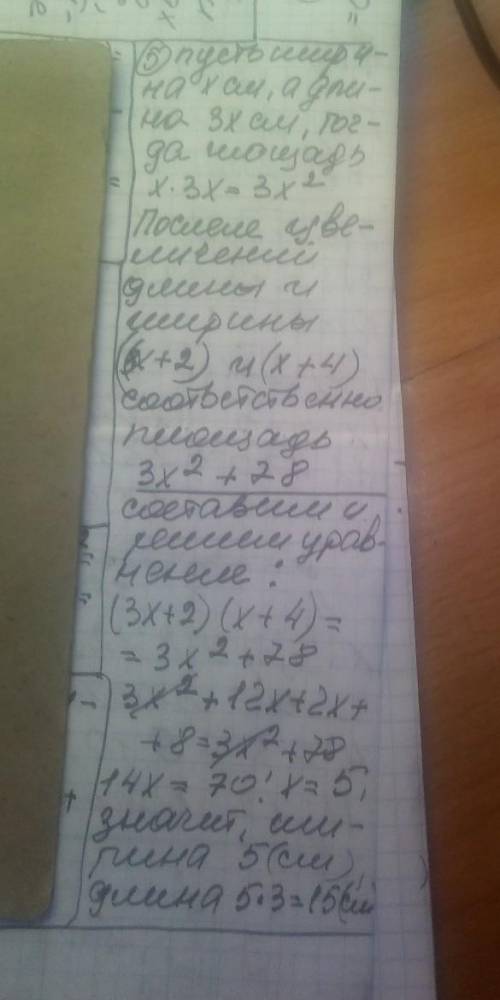 ⑤ пусть шири-
на x см, а дли-
на 3x см, тог-
да площадь
x·3x=3x²
После уве-
личений
длины и
ширины
(3x+2) и (x+4)
соответственно
площадь
3x²+78
составим и
решим урав-
нение:
(3x+2)(x+4)=
=3x²+78
3x²+12x+2x+
+8=3x²+78
14x=70; x=5,
значит, ши-
рина 5(см),
длина 5·3=15(см)